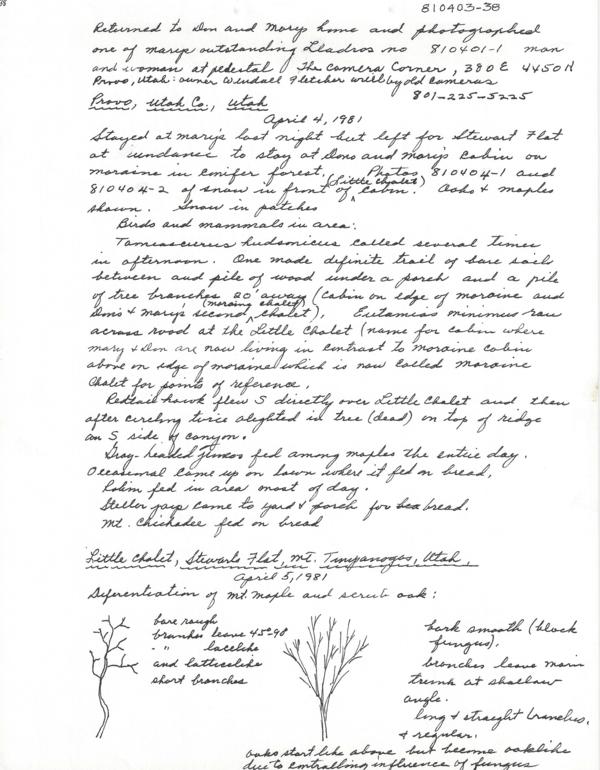 38
810403-38
Returned to Don and Marys home and photographed
one of marys outstanding Lladros no 810401-1 man
and woman at pedestal The Camera Corner, 380 E 4450 N
Provo, Utah: owner Windell Fletcher will buy old cameras
Provo, Utah Co., Utah 801-225-5225
April 4, 1981
Stayed at marys last night but left for Stewart Flat
at sundance to stay at Dons and marys Cabin on
moraine in Conifer forest. Photos 810404-1 and
810404-2 of snow in front of (Little Chalet) Cabin. Oaks & maples
shown. Snow in patches
Birds and mammals in area:
Tamiasciurus hudsonicus called several times
in afternoon. One made definite trail of bare soil
between and pile of wood under a porch and a pile
of tree branches 20' away (cabin on edge of moraine and
Don's & marys second (moraine chalet) chalet). Eutamias minimus ran
across road at the Little Chalet (name for cabin where
mary & Don are now living in contrast to moraine cabin
above on edge of moraine which is now called moraine
Chalet for points of reference.
Redtail hawk flew S directly over Little Chalet and then
after circling twice alighted in tree (dead) on top of ridge
on S side of canyon.
Gray-headed juncos fed among maples the entire day.
Occasional came up on lawn where it fed on bread.
Robin fed in area most of day.
Steller jays came to yard & porch for bread.
Mt. Chickadee fed on bread
Little Chalet, Stewarts Flat, Mt. Timpanogos, Utah.
April 5, 1981
Diferentiation of mt. maple and scrub oak:
bare rough
branches leave 45°-90
" " lacelike
and latticelike
short branches
bark smooth (black
fungus).
branches leave main
trunk at shallow
angle.
long & straight branches.
& regular.
oaks start like above but become oaklike
due to controlling influence of fungus